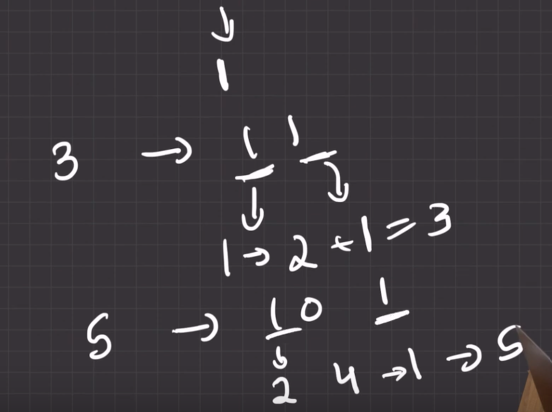 ↓
1
3 → 1 1
↓ ↓
1 → 2 + 1 = 3
5 → 1 0 1
↓
2 4 → 1 → 5